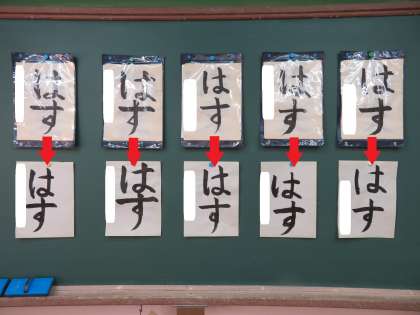 はす
はす
はす
はす
はす
はす
はす
はす
はす
はす